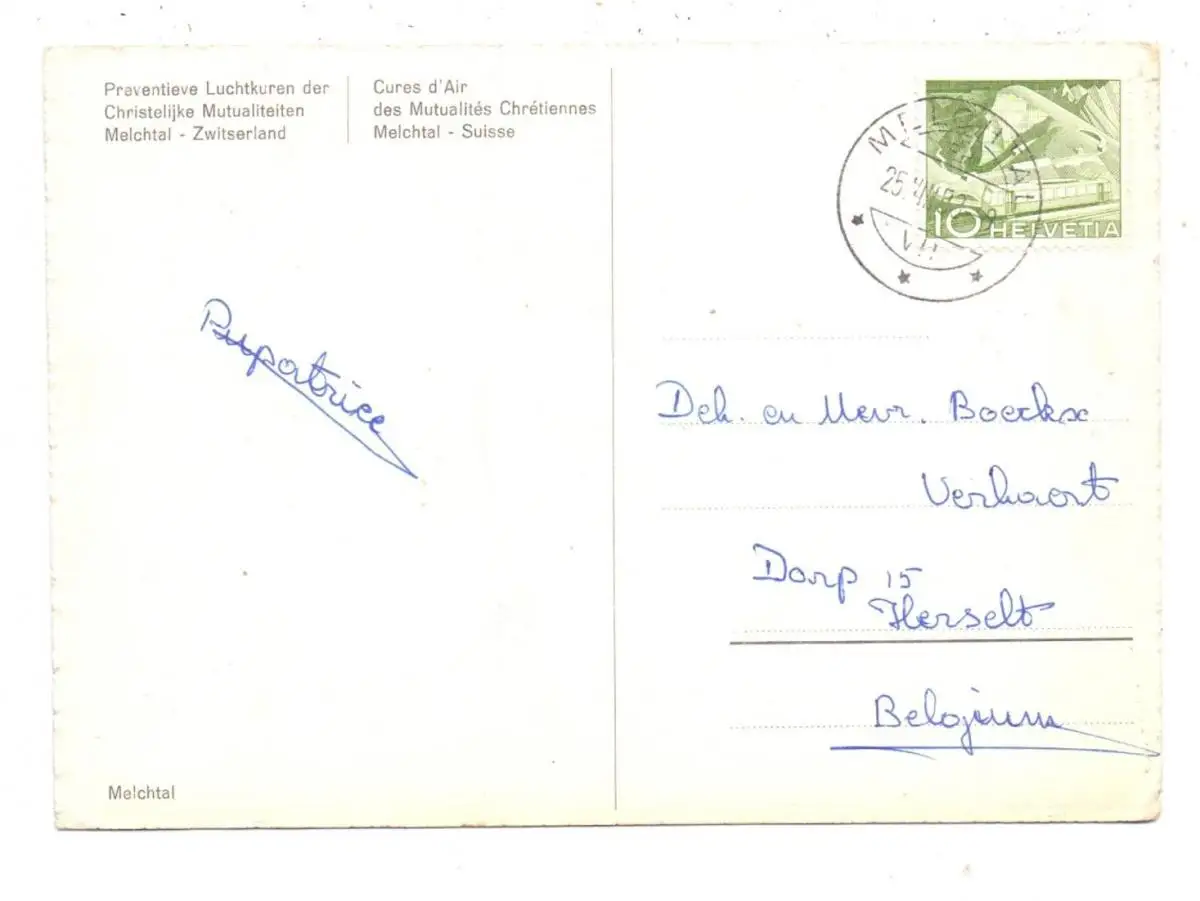 Preventieve Luchtkuren der
Christelijke Mutualiteiten
Melchtal - Zwitserland
Cures d'Air
des Mutualités Chrétiennes
Melchtal - Suisse
MELCHTAL
25.
VII
10 HELVETIA
Deh. en Mevr. Boeckx
Verhaert
Dorp 15
Herselt
Belgium
Melchtal